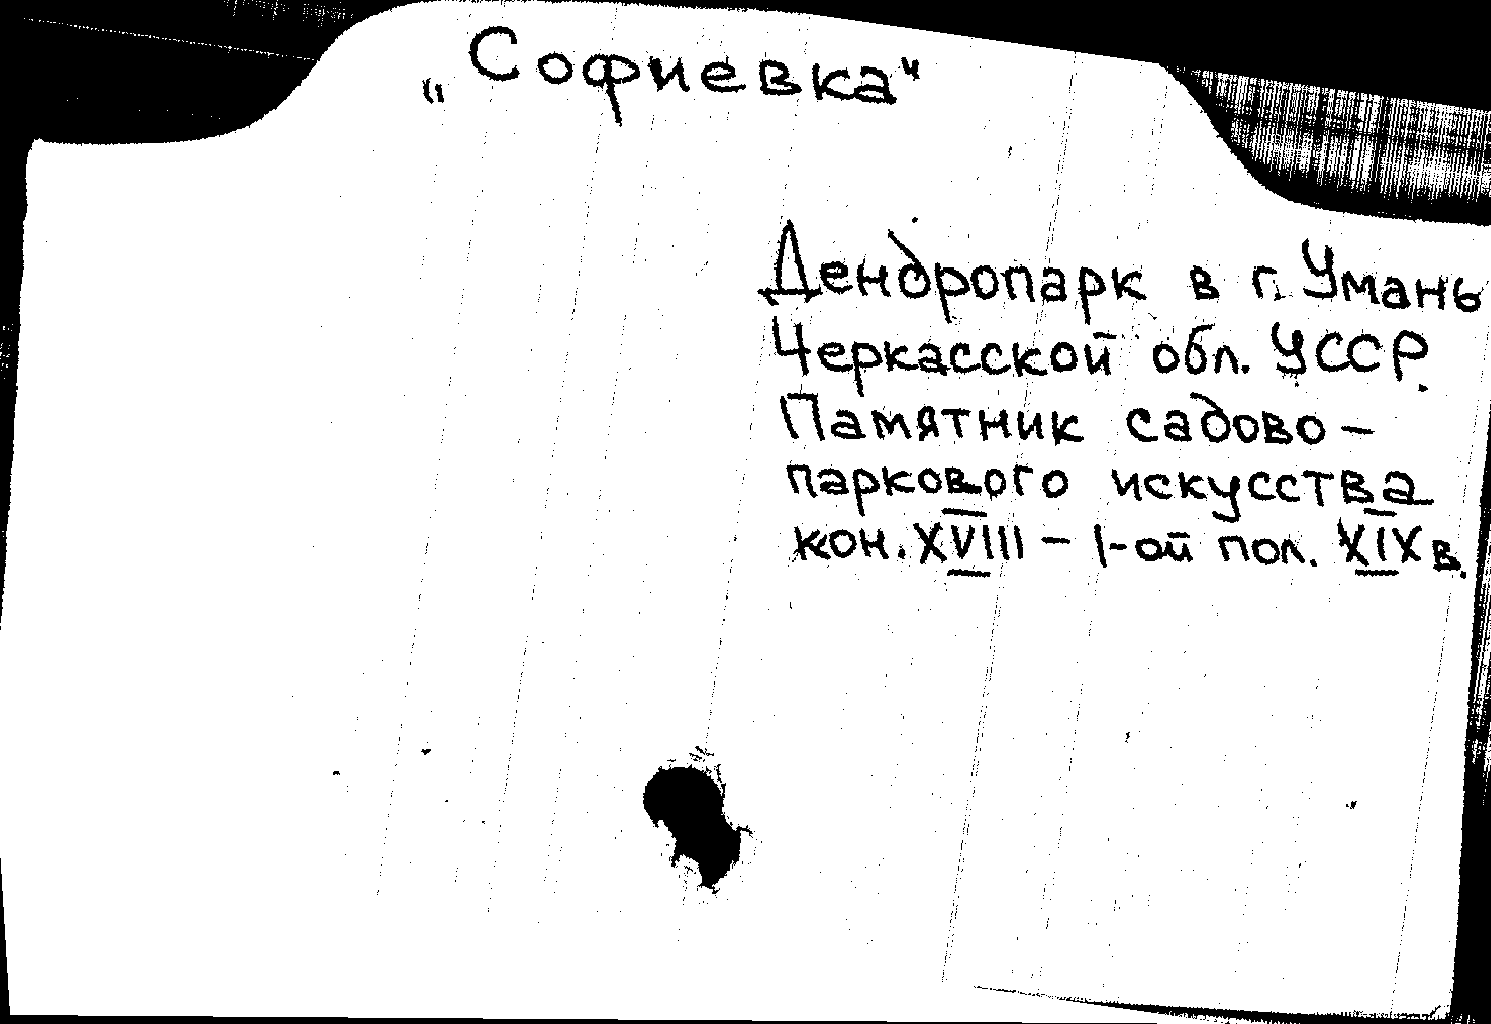 „Софиевка"
Дендропарк в г. Умань
Черкасской обл. УССР.
Памятник садово-
паркового искусства
кон. XVIII – 1-ой пол. XIX в.